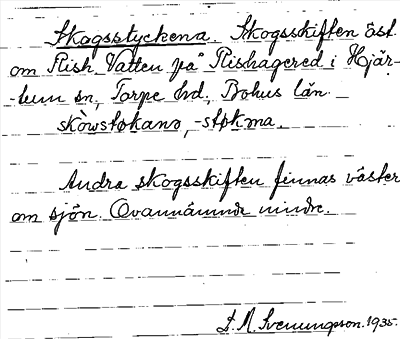 Skogsstyckena. Skogsskiften öst
om Rish. Vatten på Rishagered i Hjär-
-tum sn, Torpe hd., Bohus län.
skòwstøkano, -støkma.
Andra skogsskiften finnas väster
om sjön. Ovannämnde mindre.
D. M. Svenungson. 1935.